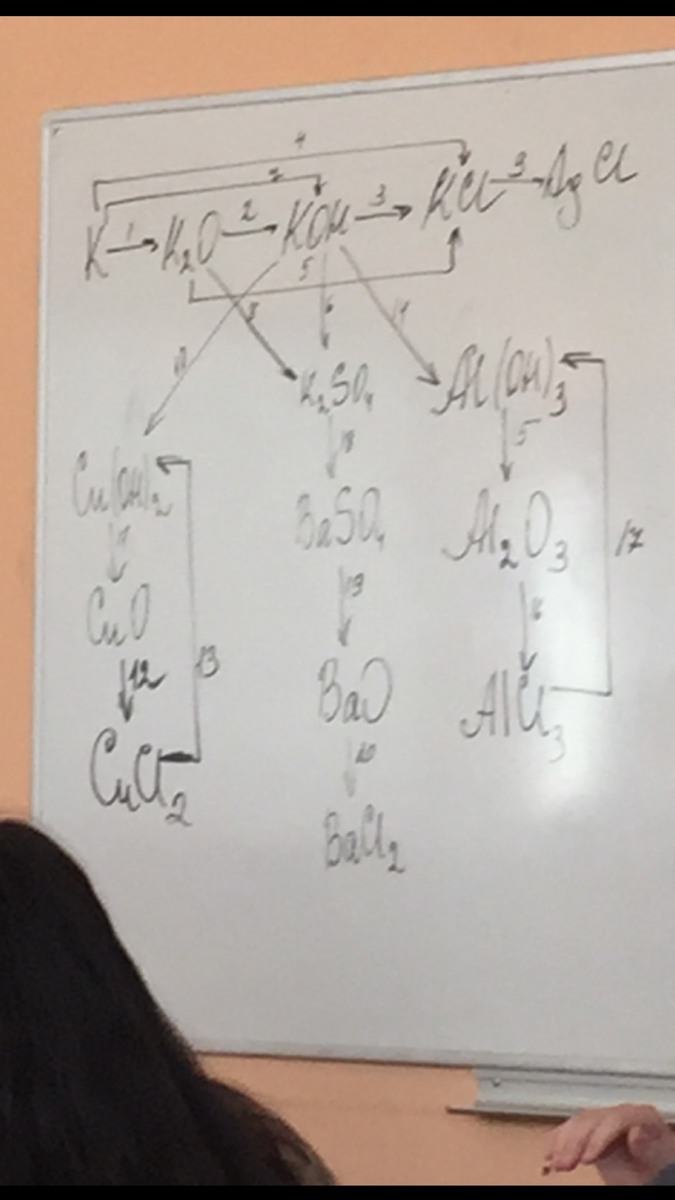 4
K 1→ K₂O 2→ KOH 3→ KCl 9→ AgCl
5
K₂SO₄ Al(OH)₃
Cu(OH)₂ 18 5
BaSO₄ Al₂O₃ 17
CuO 19
12 13 BaO AlCl₃
CuCl₂
BaCl₂